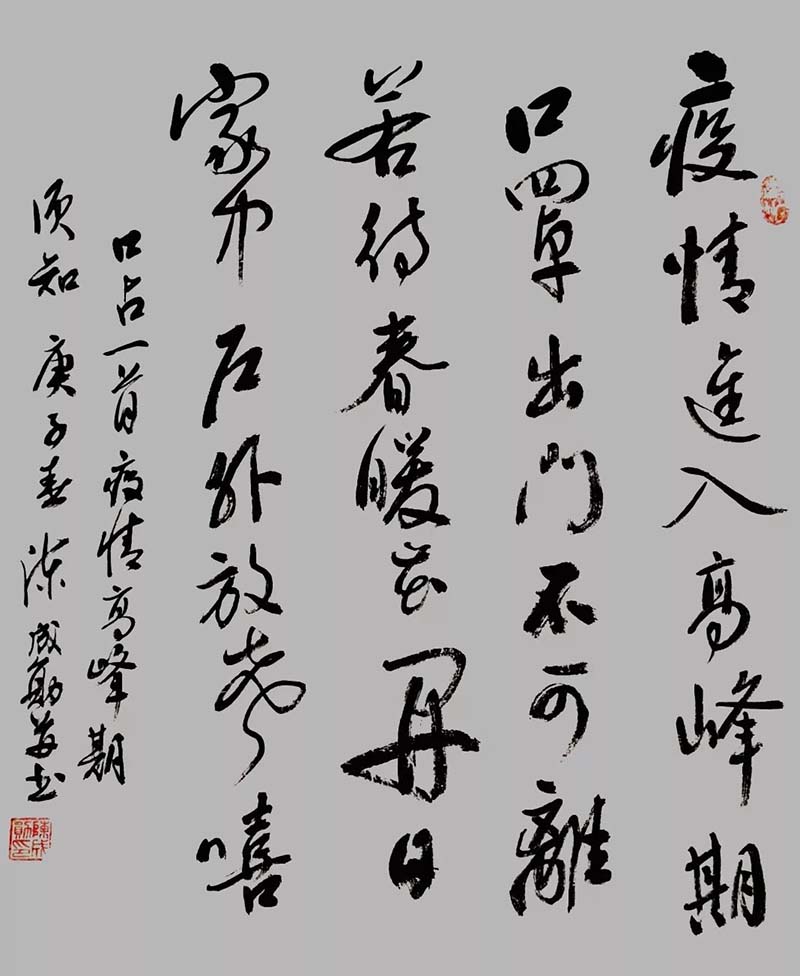 疫情進入高峰期
口罩出門不可離
若待春暖花開日
家中户外放嘻
口占一首疫情高峰期
須知 庚子春 陳成勛并书
陳成勛印